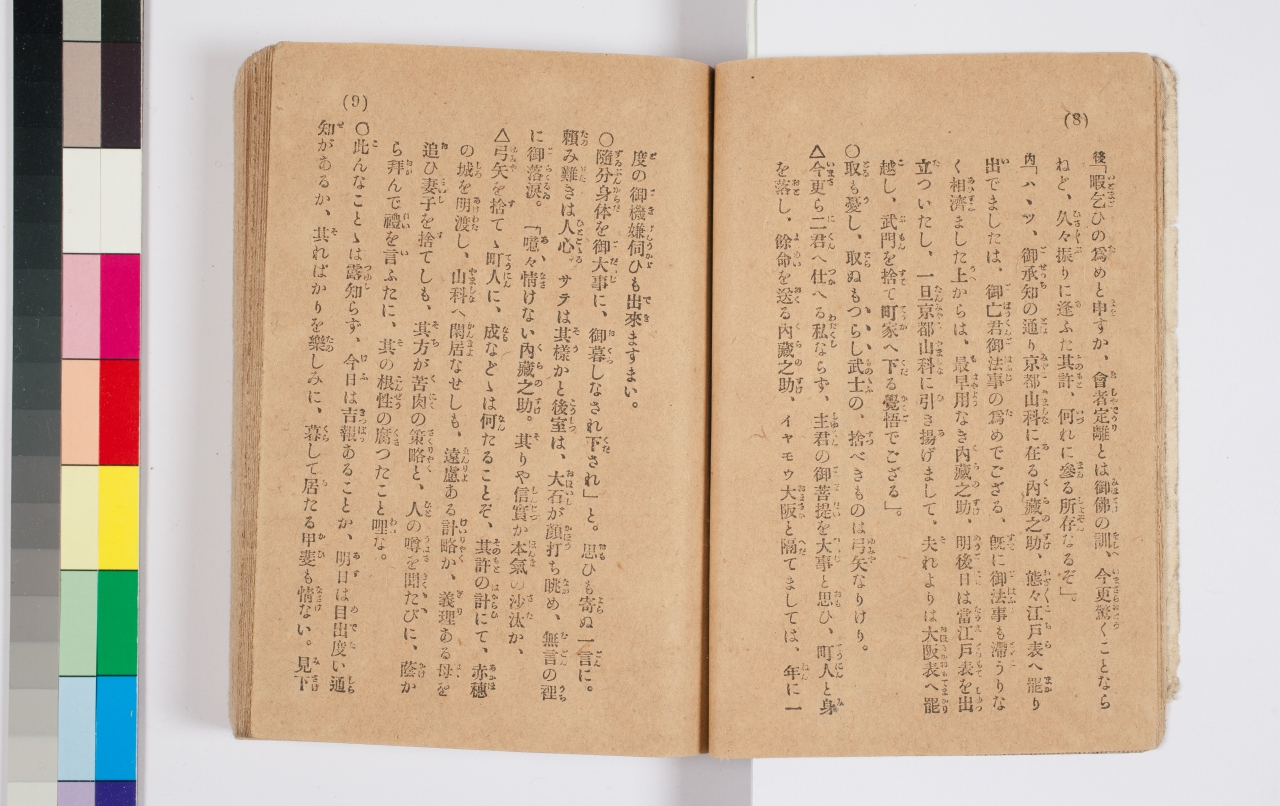 (8)
後「暇乞ひの爲めと申すか、會者定離とは御佛の訓、今更驚くことなら
ねど、久々振りに逢ふた其許、何れに參る所存なるぞ」。
内「ハヽッ、御承知の通り京都山科に在る内藏之助、態々江戸表へ罷り
出でましたは、御亡君御法事の爲めでござる、既に御法事も滯うりな
く相濟ました上からは、最早用なき内藏之助、明後日は當江戸表を出
立ついたし、一旦京都山科に引き揚げまして、夫れよりは大阪表へ罷
越し、武門を捨て町家へ下る覺悟でござる」。
〇取も憂し、取ぬもつらし武士の、捨べきものは弓矢なりけり。
△今更ら二君へ仕へる私ならず、主君の御菩提を大事と思ひ、町人と身
を落し、餘命を送る内藏之助、イヤモウ大阪と隔てましては、年に一
(9)
度の御機嫌伺ひも出來ますまい。
〇隨分身体を御大事に、御暮しなされ下され」と。思ひも寄ぬ一言に。
賴み難きは人心。サテは其樣かと後室は、大石が顔打ち眺め、無言の裡
に御落涙。「噫々情けない内藏之助。其りや信實か本氣の沙汰か、
△弓矢を捨てゝ町人に、成などゝは何たることぞ、其許の計にて、赤穗
の城を明渡し、山科へ閑居なせしも、遠慮ある計略か、義理ある母を
追ひ妻子を捨てしも、其方が苦肉の策略と、人の噂を聞くたびに、蔭か
ら拜んで禮を言ふたに、其の根性の腐つたこと哩な。
〇此んなことゝは露知らず、今日は吉報あることか、明日は目出度い通
知があるか、其ればかりを樂しみに、暮して居たる甲斐も情ない。見下